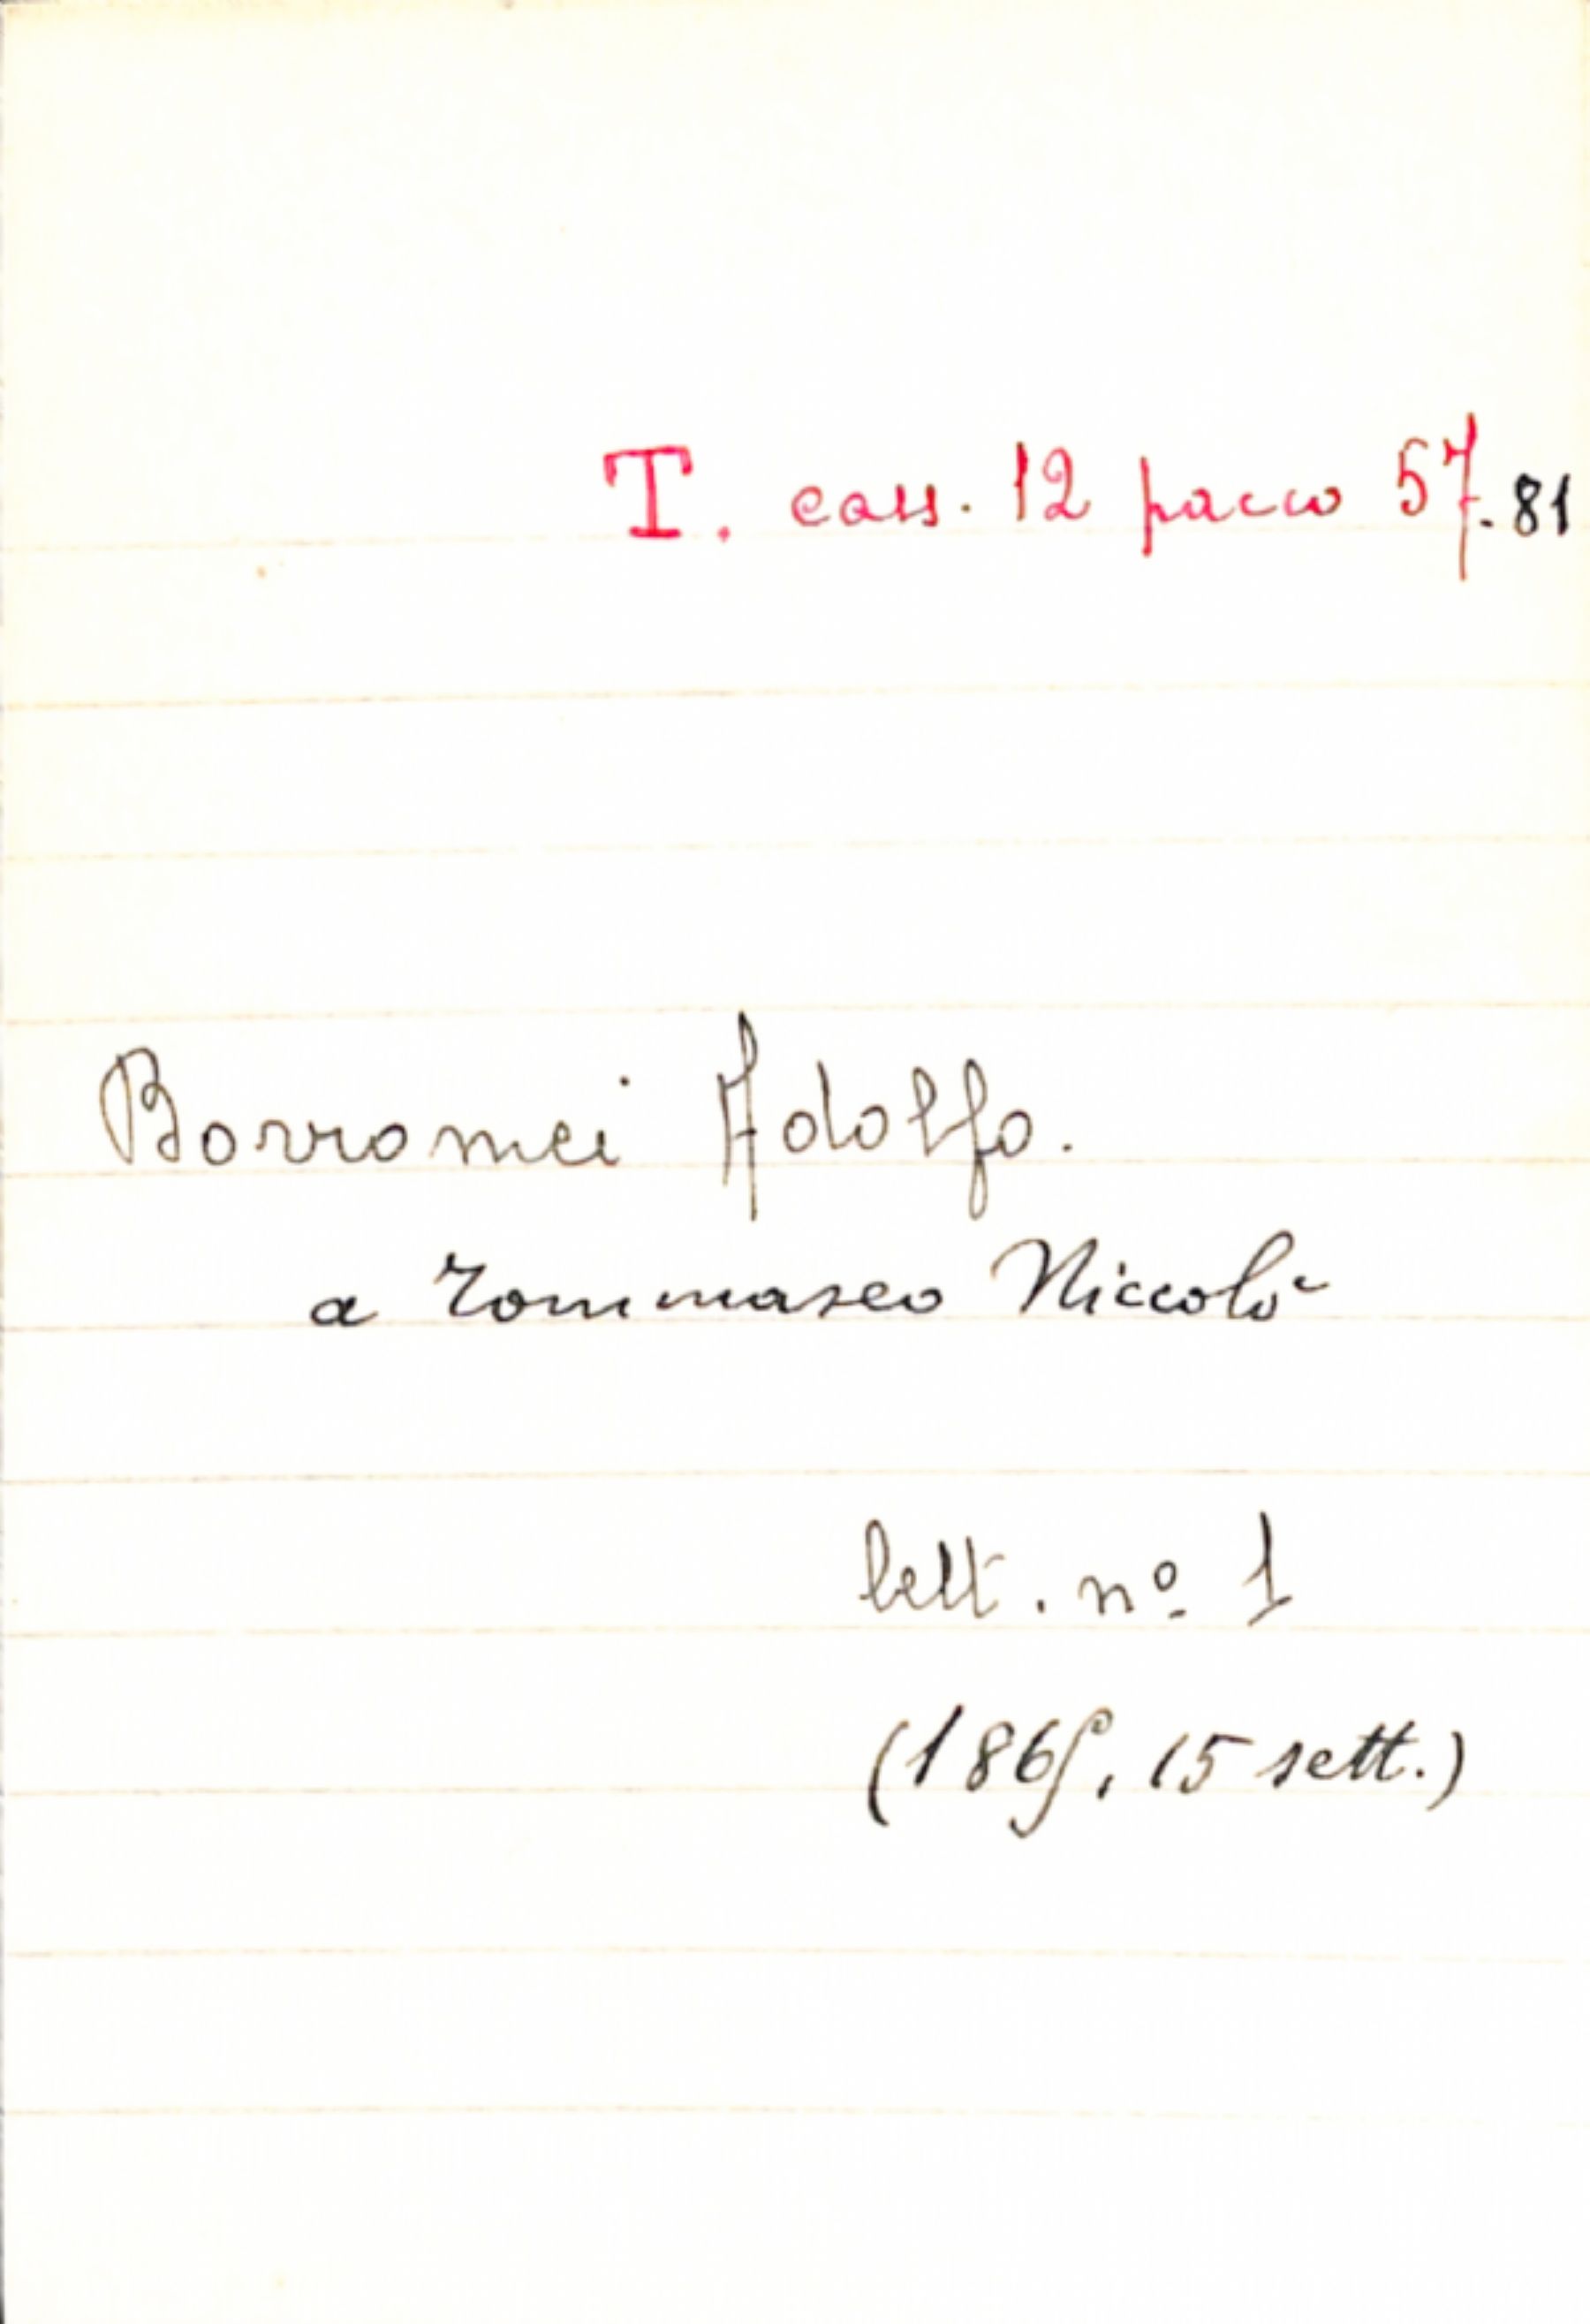 T. cass. 12 pacco 57.81
Borromei Adolfo.
a Tommaseo Niccolò
lett. nº 1
(1865, 15 sett.)